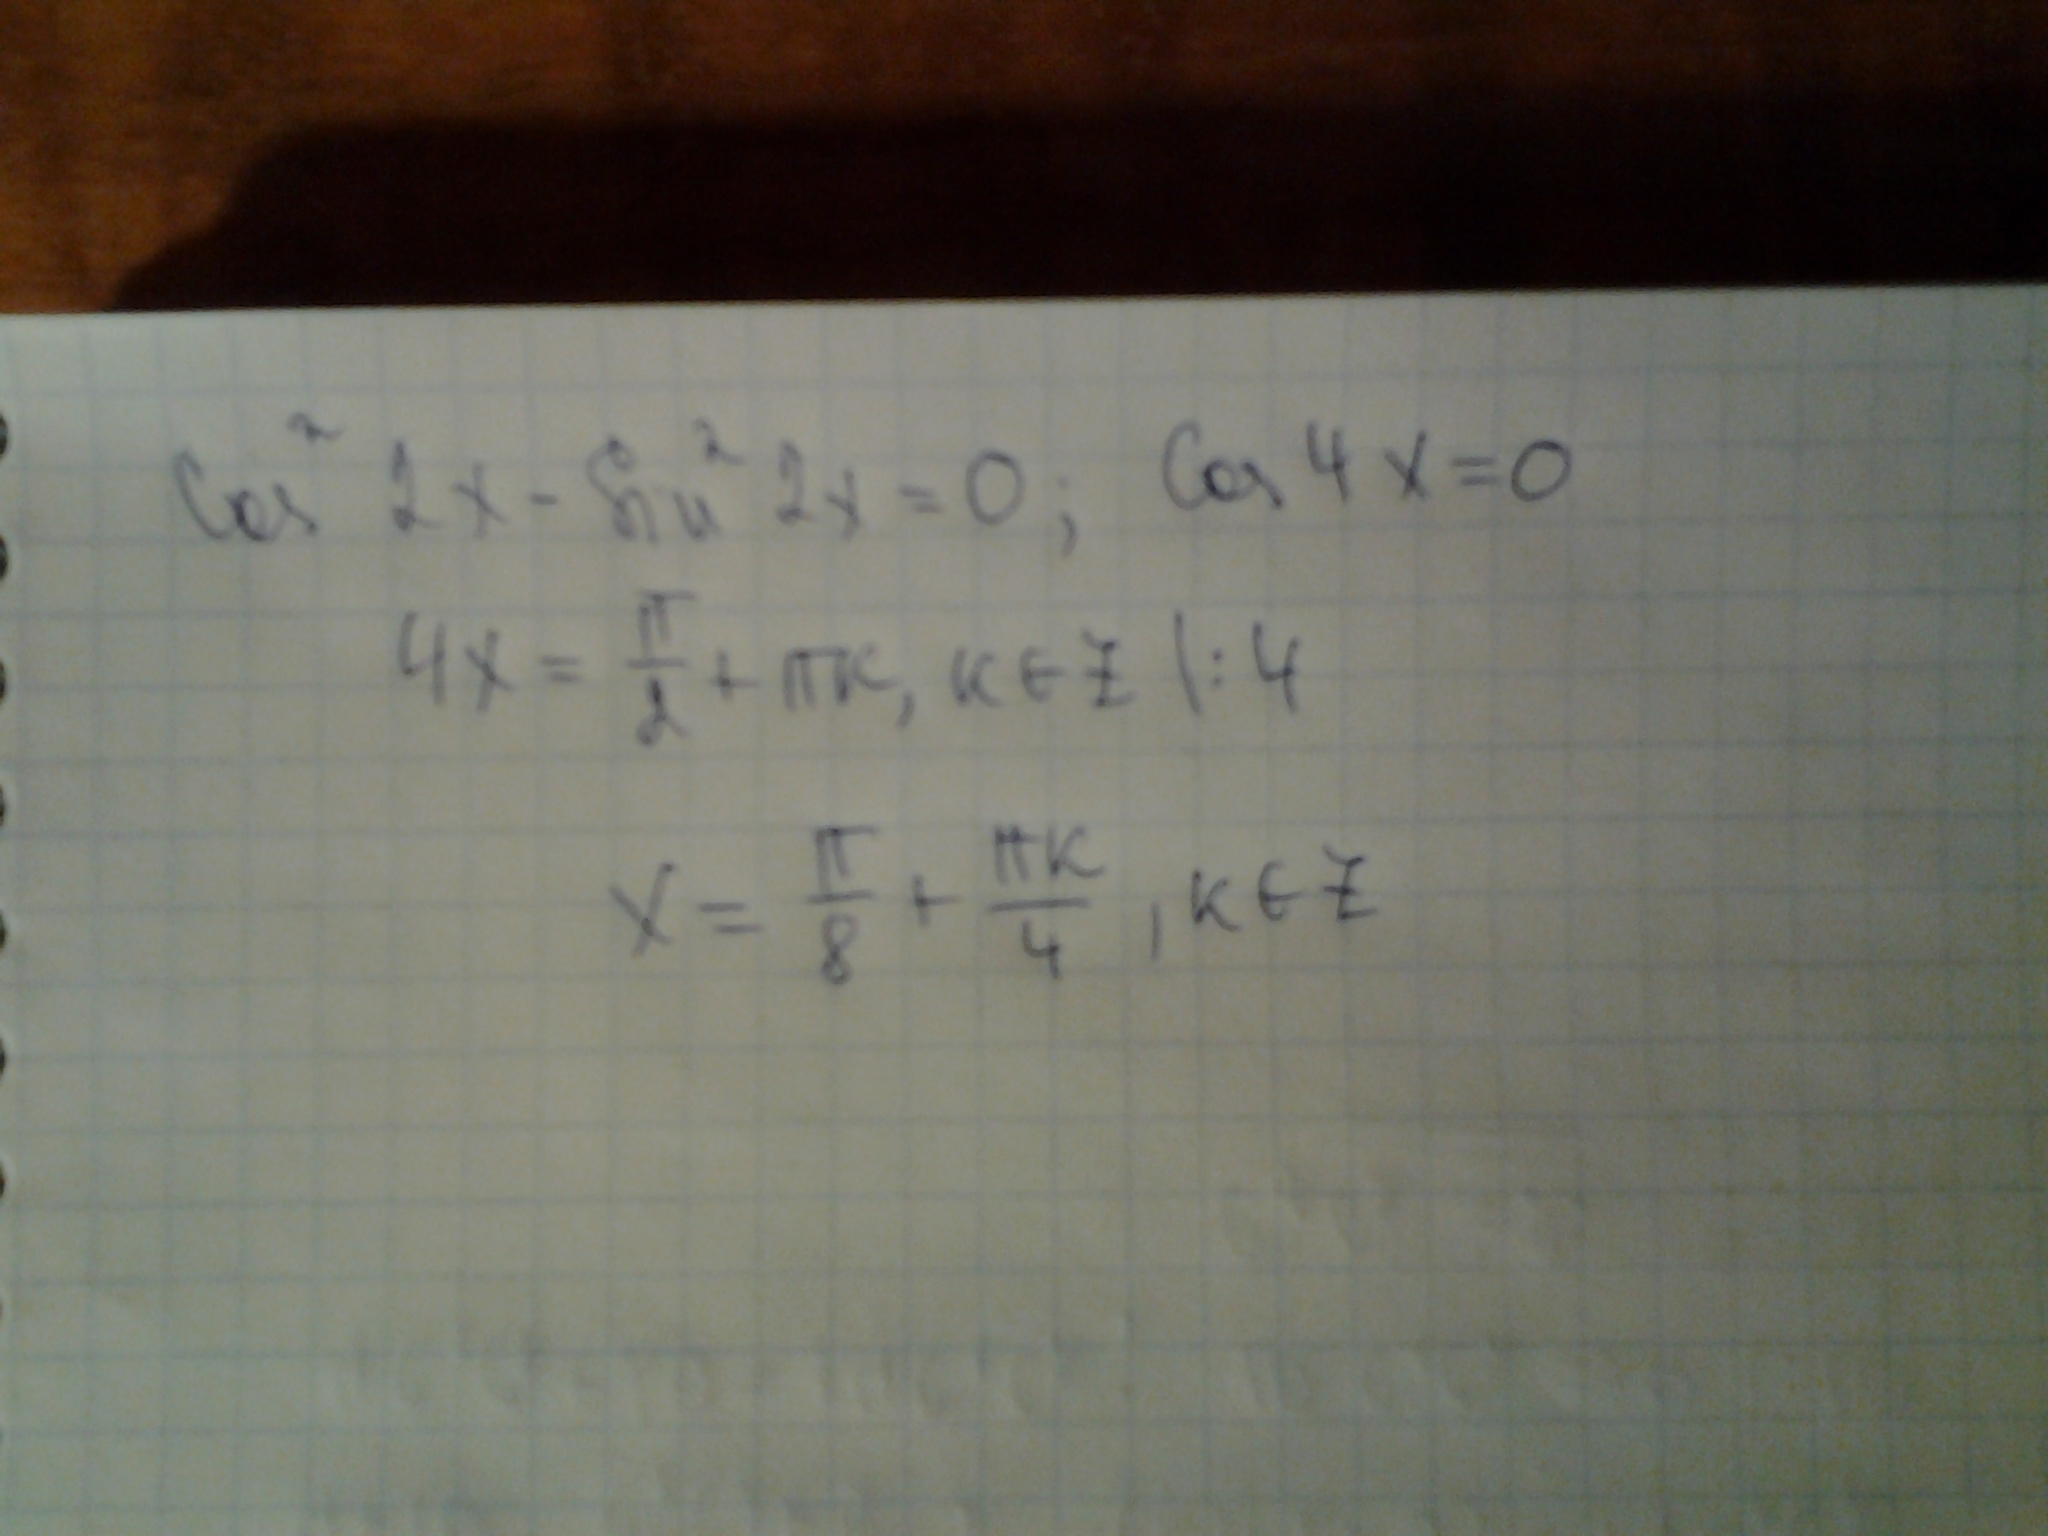 cos² 2x - sin² 2x = 0; cos 4x = 0
4x = π/2 + πk, k ∈ Z |: 4
x = π/8 + πk/4, k ∈ Z